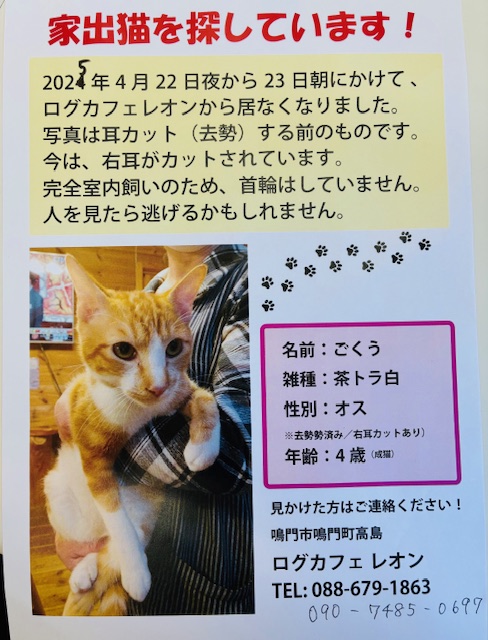 家出猫を探しています！
2025年4月22日夜から23日朝にかけて、
ログカフェレオンから居なくなりました。
写真は耳カット（去勢）する前のものです。
今は、右耳がカットされています。
完全室内飼いのため、首輪はしていません。
人を見たら逃げるかもしれません。
名前：ごくう
雑種：茶トラ白
性別：オス
※去勢勢済み／右耳カットあり）
年齢：4歳（成猫）
見かけた方はご連絡ください！
鳴門市鳴門町高島
ログカフェ レオン
TEL: 088-679-1863
090-7485-0697